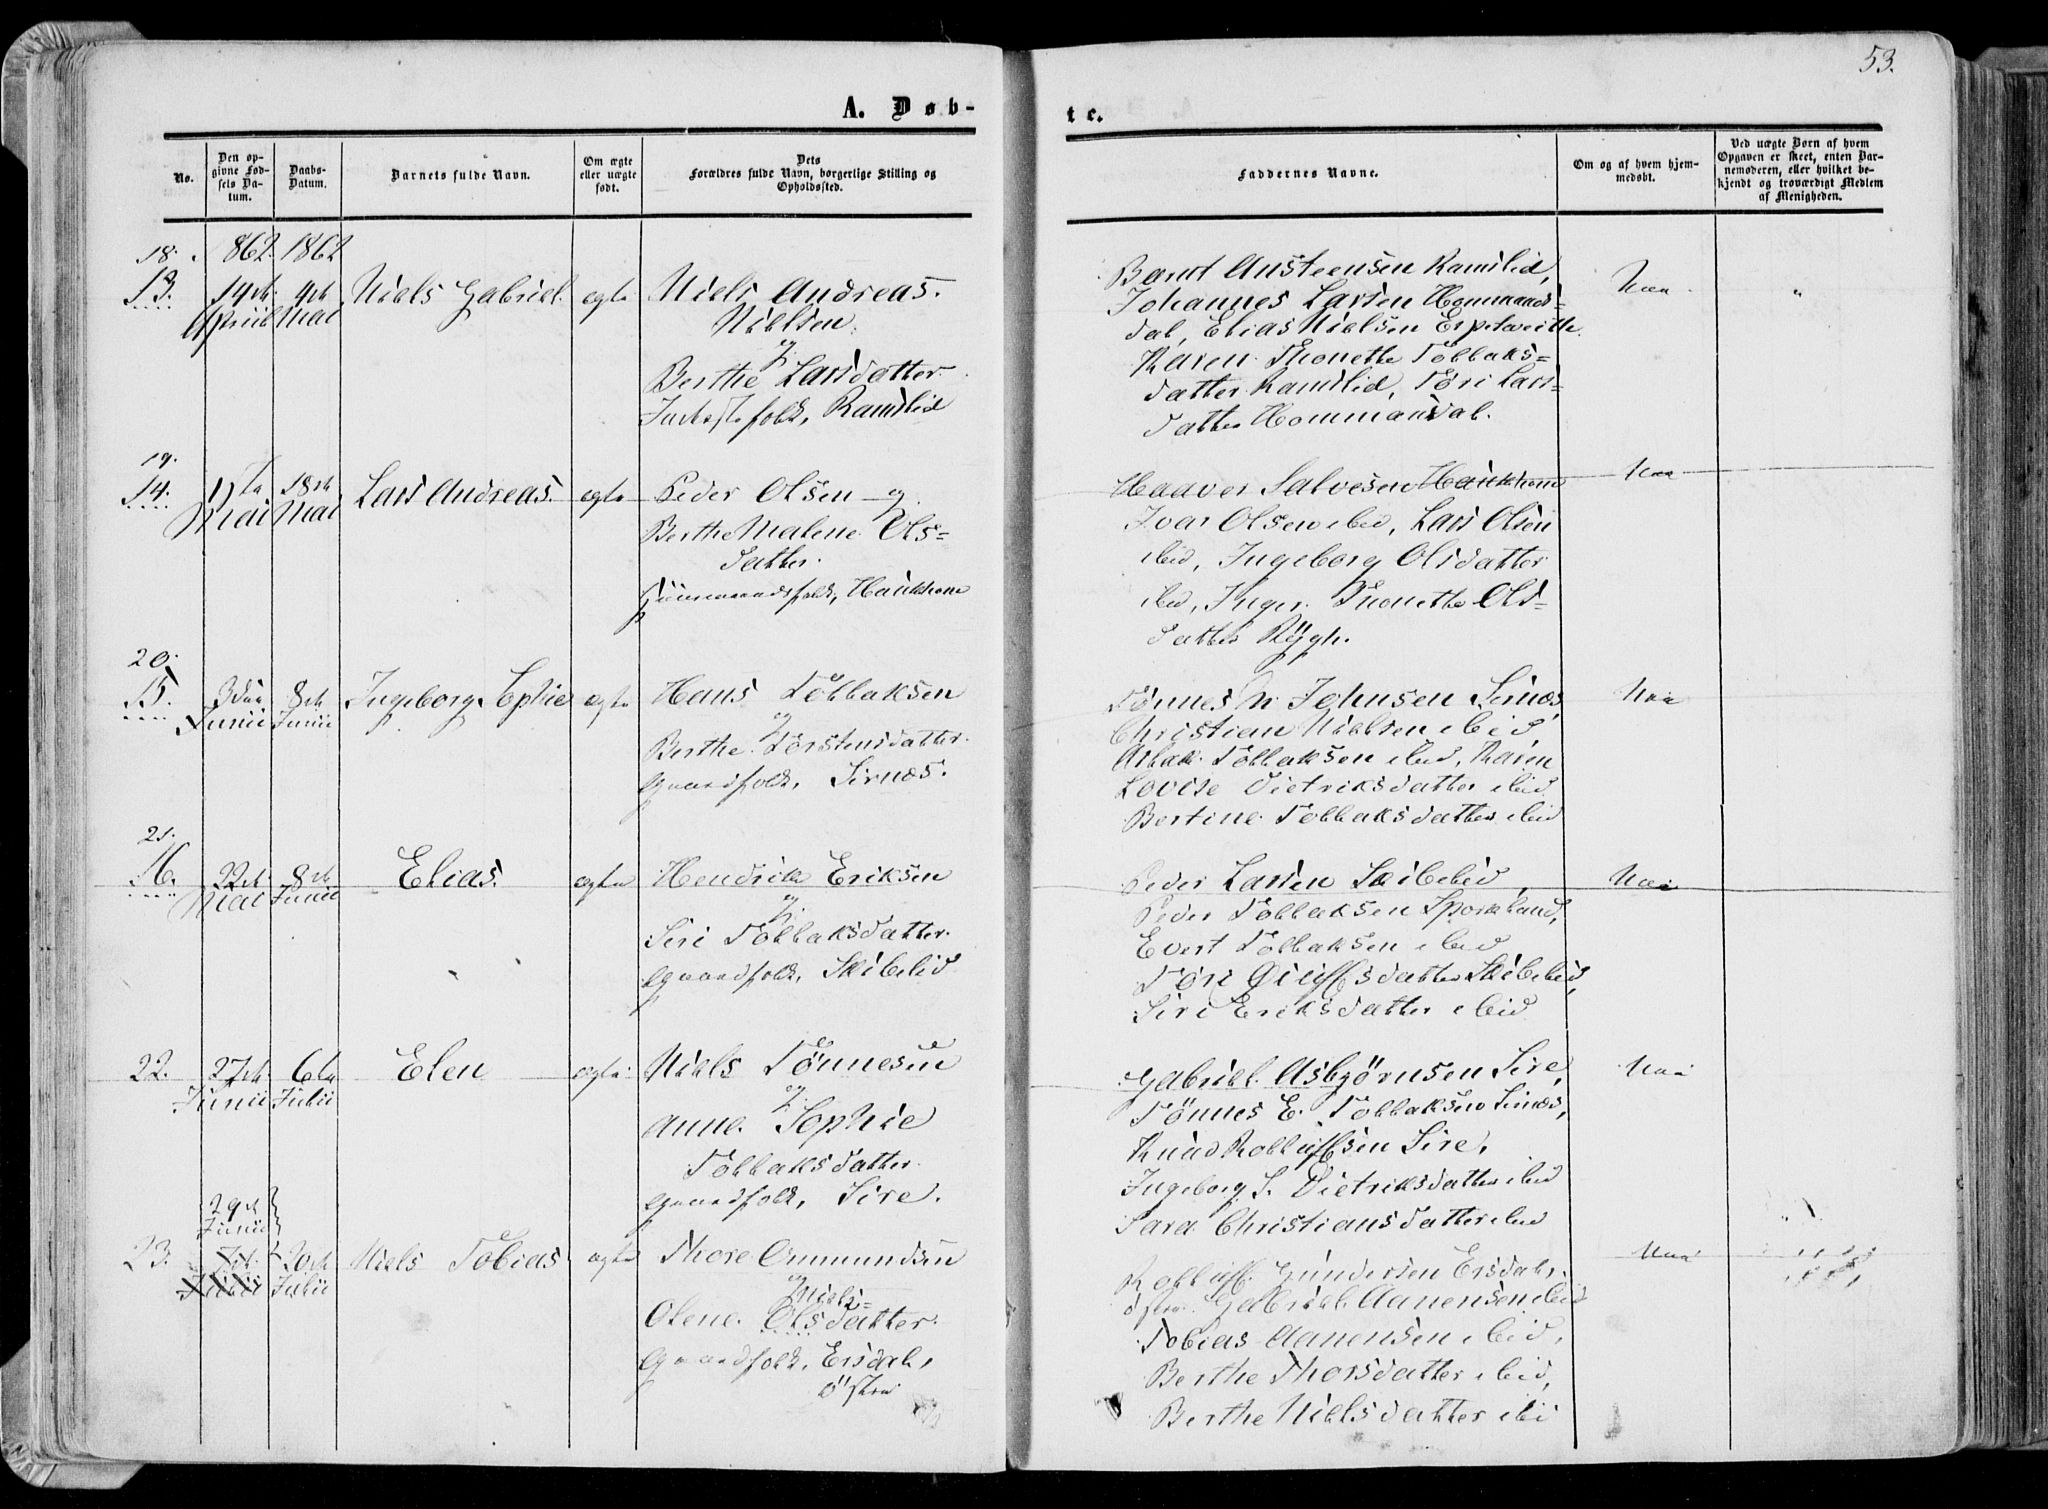 53.
A. Døb-
te.
No.
Den op-
givne Fød-
sels Da-
tum.
Daabs-
Datum.
Barnets fulde Navn.
Om ægte
eller uægte
født.
Dets
Forældres fulde Navn, borgerlige Stilling og
Opholdssted.
Faddernes Navne.
Om og af hvem hjem-
medøbt.
Ved uægte Børn af hvem
Opgaven er skeet, enten Bar-
nemoderen, eller hvilket be-
kjendt og troværdigt Medlem
af Menigheden.
18.
1862 1862
13.
14de
April
4de
Mai
Niels Gabriel
ægte
Niels Andreas
Nielsen
og
Berthe Larsdatter
folk, Ramslid
Berent Austeensen Ramslid,
Johannes Larsen Hommans-
dal, Elias Nielsen
Karen Thonette Tollaks-
datter Ramslid, Töri Lars-
datter Hommansdal.
Nei
"
19.
14.
Mai
18de
Mai
Lars Andreas
ægte
Peder Olsen og
Berthe Malene Ols-
datter
Haaver Salvesen
Ivar Olsen ibid, Lars Olsen
ibid, Ingeborg Olsdatter
ibid, Inger Thonette Ols-
datter Rÿgh.
Nei
20.
15.
3die
Junii
8de
Junii
Ingeborg Sophie
ægte
Hans Tollaksen
og
Berthe Torstensdatter
Gaardfolk, Sirnæs.
Tönnes N. Johnsen Sirnæs,
Christian Nielsen ibid
Aslak Tollaksen ibid, Karen
Lovise Dietriksdatter ibid
Bertine Tollaksdatter ibid
Nei
21.
16.
22de
Mai
8de
Junii
Elias.
ægte
Hendrik Eriksen
og
Siri Tollaksdatter
Gaardfolk, Skibelid
Peder Larsen Skibelid,
Peder Tollaksen Sporkland,
Evert Tollaksen ibid
Töri datter Skibelid,
Siri Eriksdatter ibid
Nei
22.
27de
Junii
6te
Julii
Elen
ægte
Niels Tönnesen
og
Anne Sophie
Tollaksdatter
Gaardfolk, Sire.
Gabriel Asbjörnsen Sire,
Tönnes E. Tollaksen Sirnæs,
Knud Rolluffsen Sire,
Ingeborg S. Dietriksdatter ibid
Sara Christiansdatter ibid
Nei
29de
Junii
23.
7de
Julii
20de
Julii
Niels Tobias
ægte
Thore Ommundsen
og
Niels-
Olene Olsdatter
Gaardfolk, Ersdal,
östre
Rolluff Gundersen Ersdal,
östre Gabriel Aanensen ibid
Tobias Aanensen ibid,
Berthe Thorsdatter ibid,
Berthe Nielsdatter ibi
Nei